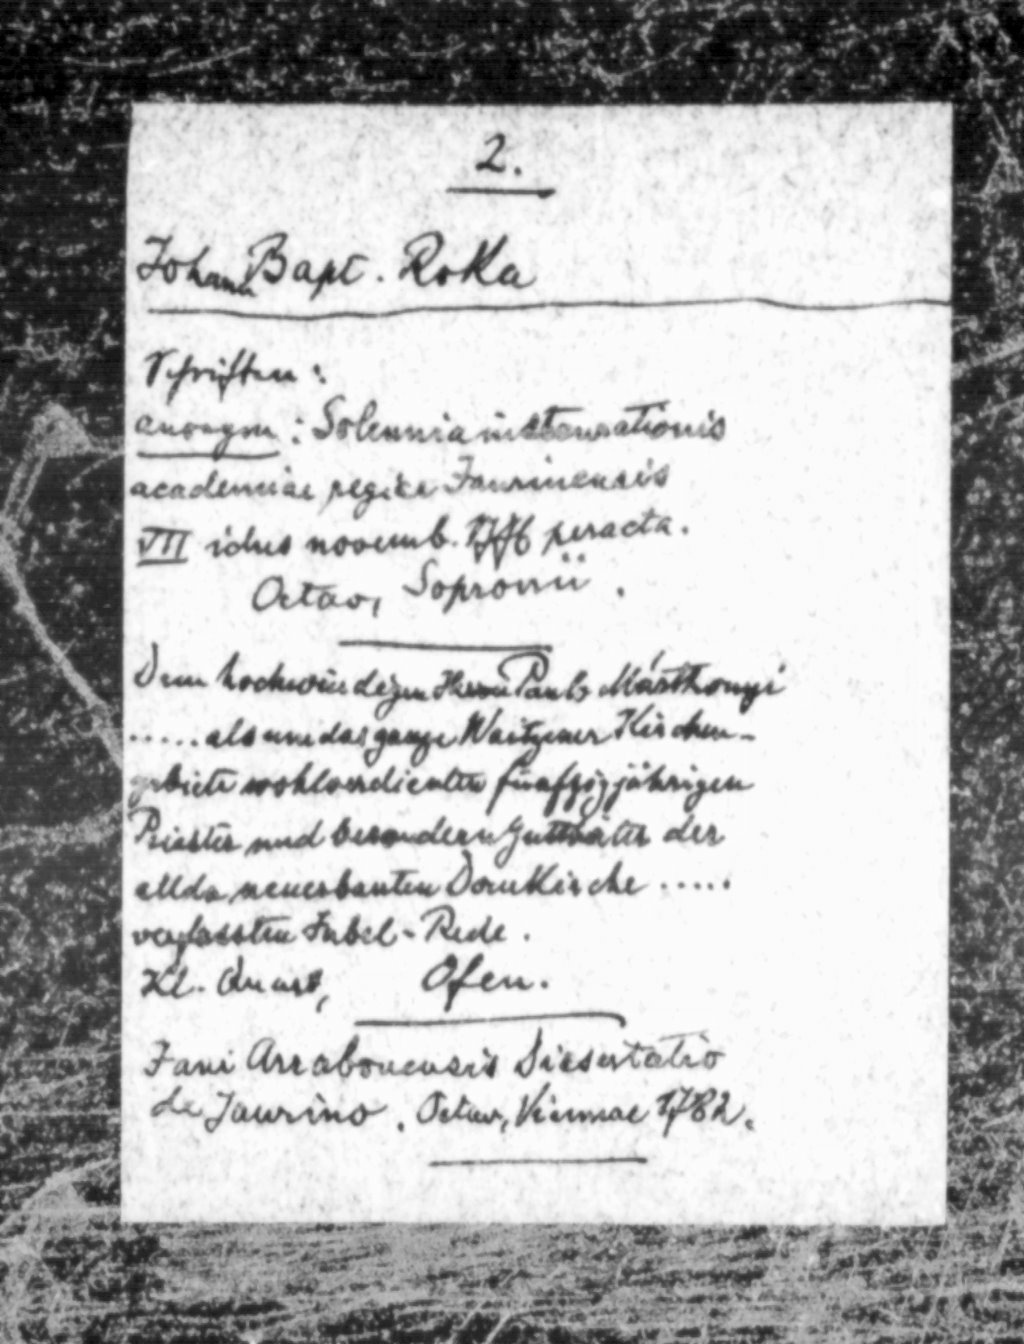 2.
Johann Bapt. Roka
Schriften:
anonym: Solennia instaurationis
academiae regiae Jaurinensis
VII idus novemb. 1776 peracta.
Octav, Sopronii.
Dem hochwürdigen Herrn Paul v Másthonyi
.....als um das ganze Waitzener Kirchen-
gebiete wohlverdienten fünfzigjährigen
Priester und besondern Gutthäter der
allda neuerbauten Domkirche.....
verfassten Jubel-Rede.
Kl. Quart, Ofen.
Jani Arrabonensis Dissertatio
de Jaurino. Octav, Viennae 1782.